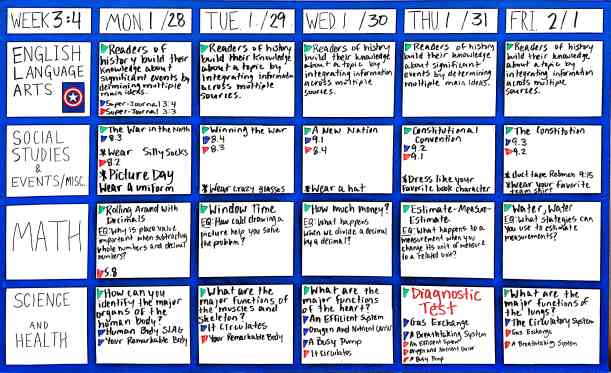 WEEK 3:4
MON 1/28
TUE 1/29
WED 1/30
THU 1/31
FRI 2/1
ENGLISH
LANGUAGE
ARTS
Readers of
history build their
knowledge about
significant events by
determining multiple
main ideas.
Super-Journal 3:4
Super-Journal 3:3
Readers of history
build their knowledge
about a topic by
integrating information
across multiple
sources.
Readers of history
build their knowledge
about a topic by
integrating information
across multiple
sources.
Readers of history
build their knowledge
about significant
events by determining
multiple main ideas.
Readers of history
build their knowledge
about a topic by
integrating information
across multiple
sources.
SOCIAL
STUDIES
&
EVENTS/MISC.
The War in the North
8.3
*Wear Silly Socks
8.2
*Picture Day
Wear a uniform
Winning the War
8.4
8.3
*Wear crazy glasses
A New Nation
9.1
8.4
*Wear a hat
Constitutional
Convention
9.2
9.1
*Dress like your
favorite book character
The Constitution
9.3
9.2
*duct tape Rebman 9:15
*Wear your favorite
team shirt
MATH
Rolling Around with
Decimals
EQ: Why is place value
important when subtracting
whole numbers and decimal
numbers?
5.8
Window Time
EQ: How could drawing a
picture help you solve
the problem?
How much money?
EQ: What happens
when we divide a decimal
by a decimal?
Estimate-Measure-
Estimate
EQ: What happens to a
measurement when you
change its unit of measure
to a related unit?
Water, Water
EQ: What strategies can
you use to estimate
measurements?
SCIENCE
AND
HEALTH
How can you
identify the major
organs of the
human body?
Human Body SLAG
Your Remarkable Body
What are the
major functions of
the muscles and
skeleton?
It Circulates
Your Remarkable Body
What are the
major functions
of the heart?
An Efficient System
Oxygen and Nutrient Delivery
A Busy Pump
It Circulates
Diagnostic
Test
Gas Exchange
A Breathtaking System
An Efficient System
Oxygen and Nutrient Delivery
A Busy Pump
What are the
major functions of
the lungs?
The Circulatory System
Gas Exchange
A Breathtaking System